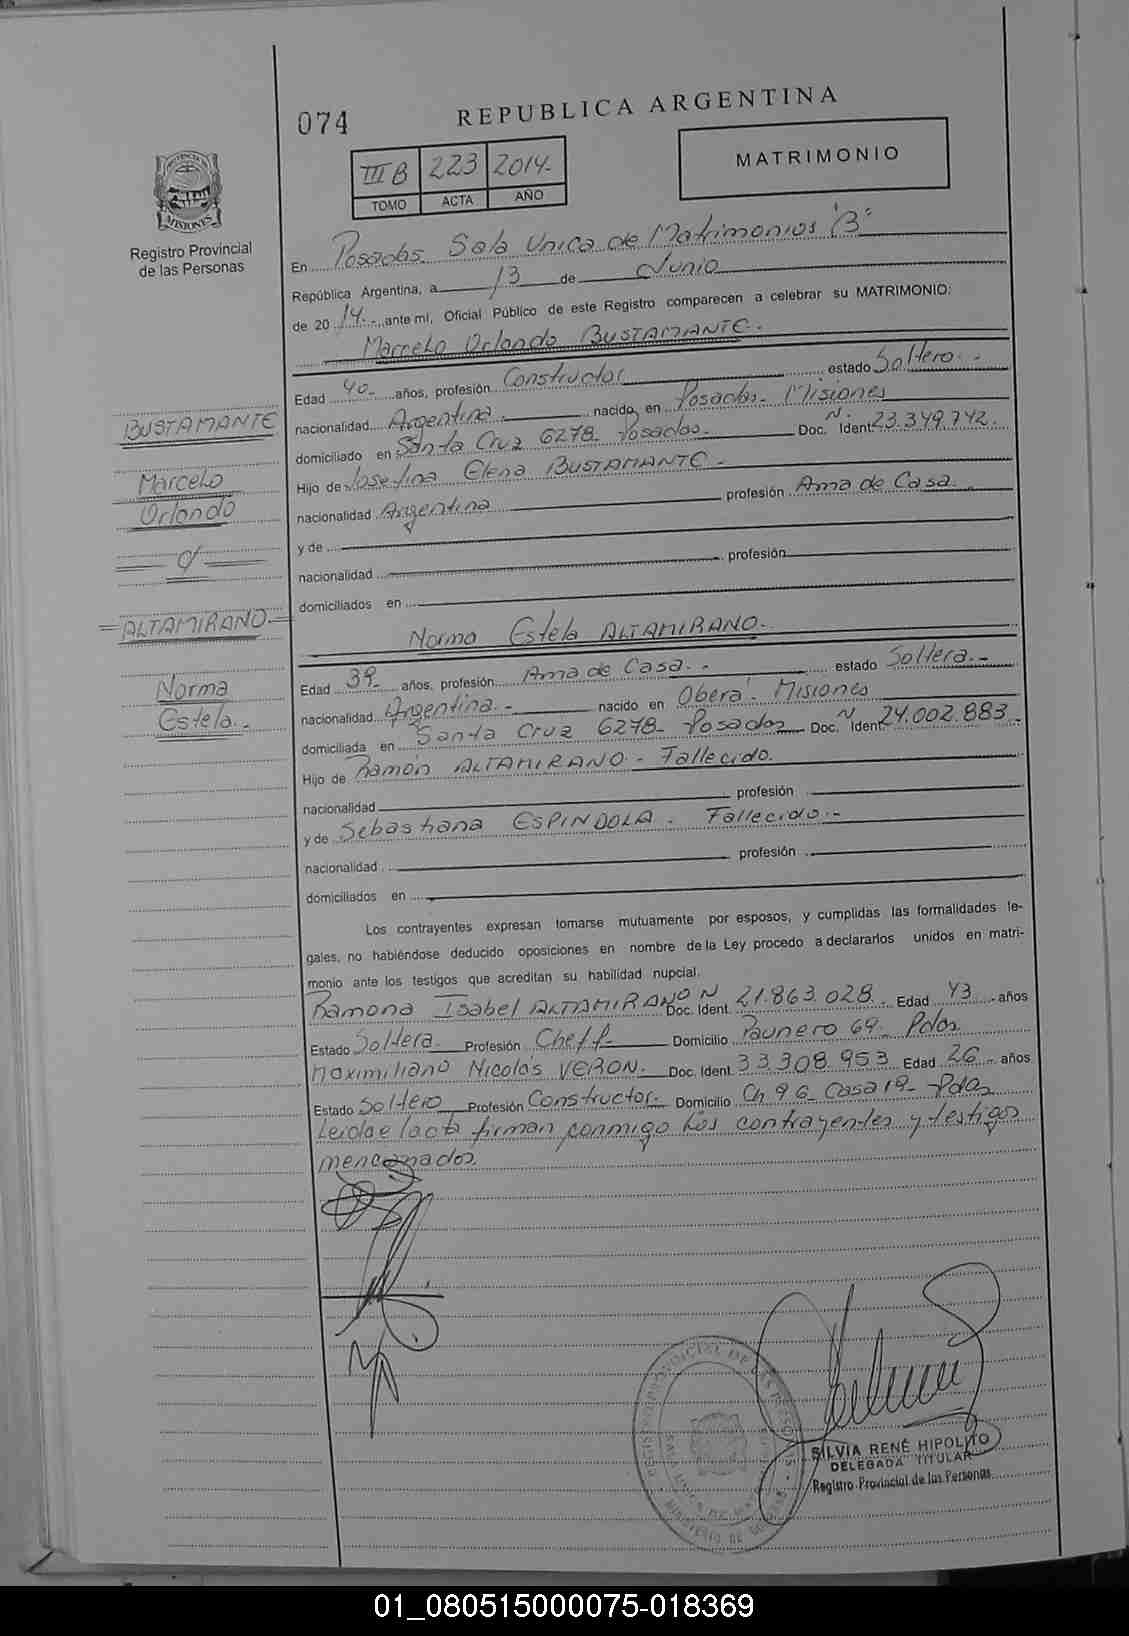 074
REPUBLICA ARGENTINA
III B 223 2014.-
TOMO ACTA AÑO
MATRIMONIO
Registro Provincial
de las Personas
En Posadas. Sala Unica de Matrimonios "B"
República Argentina, a 13 de Junio
de 20 14.- ante mí, Oficial Público de este Registro comparecen a celebrar su MATRIMONIO:
Marcelo Orlando BUSTAMANTE.
Edad 40- años, profesión Constructor estado Soltero.-
nacionalidad Argentina.- nacido en Posadas- Misiones
domiciliado en Santa Cruz 6278- Posadas.- Doc. Ident. Nº 23.349.742.
Hijo de Josefina Elena BUSTAMANTE.-
nacionalidad Argentina profesión Ama de Casa.
y de
nacionalidad profesión
domiciliados en
Norma Estela ALTAMIRANO.-
Edad 39- años, profesión Ama de Casa.- estado Soltera.-
nacionalidad Argentina.- nacido en Oberá- Misiones
domiciliada en Santa Cruz 6278- Posadas Doc. Ident. Nº 24.002.883.
Hijo de Ramón ALTAMIRANO- Fallecido.
nacionalidad profesión
y de Sebastiana ESPINDOLA. Fallecido.-
nacionalidad profesión
domiciliados en
Los contrayentes expresan tomarse mutuamente por esposos, y cumplidas las formalidades le-
gales, no habiéndose deducido oposiciones en nombre de la Ley procedo a declararlos unidos en matri-
monio ante los testigos que acreditan su habilidad nupcial.
Ramona Isabel ALTAMIRANO Doc. Ident. Nº 21.863.028. Edad 43 años
Estado Soltera. Profesión Cheff. Domicilio Paunero 69- Pdas
Maximiliano Nicolás VERON. Doc. Ident. 33.308.953 Edad 26 - años
Estado Soltero Profesión Constructor. Domicilio Ch 96- Casa 19- Pdas
Leida el acta firman conmigo los contrayentes y testigos
mencionados.
BUSTAMANTE
Marcelo
Orlando
c/
=ALTAMIRANO.=
Norma
Estela.-
REGISTRO PROVINCIAL DE LAS PERSONAS
SILVIA RENÉ HIPOLITO
DELEGADA TITULAR
Registro Provincial de las Personas
01_080515000075-018369